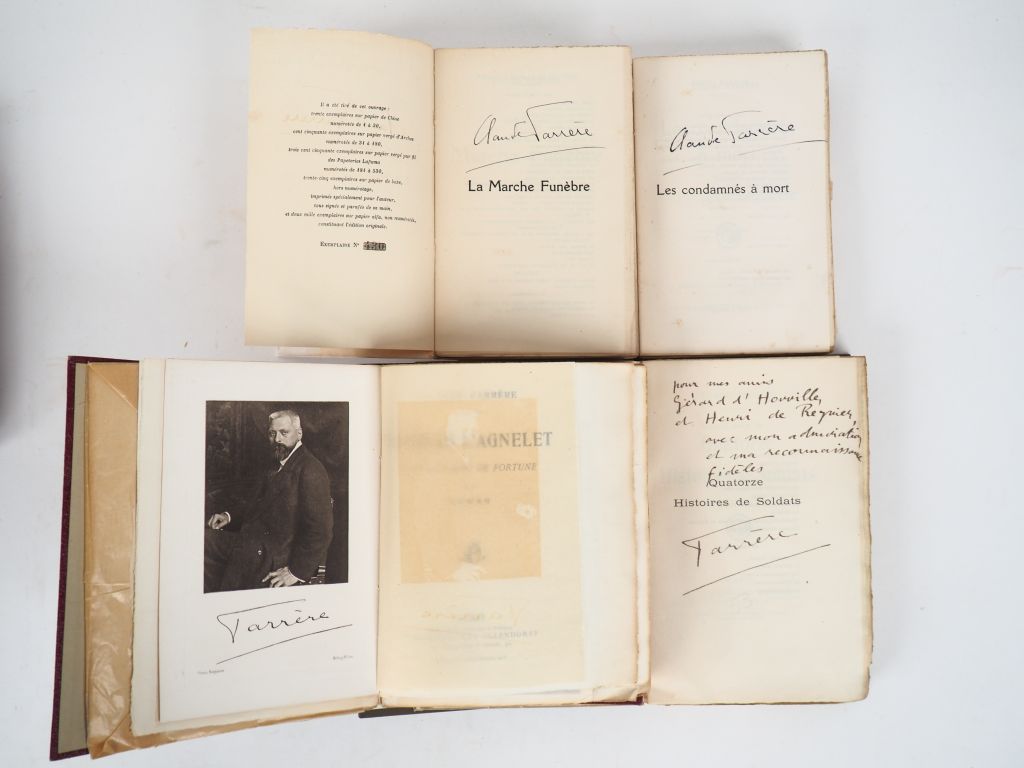 Il a été tiré de cet ouvrage :
trente exemplaires sur papier de Chine
numérotés de 1 à 30,
cent cinquante exemplaires sur papier vergé d'Arches
numérotés de 31 à 180,
trois cent cinquante exemplaires sur papier vergé pur fil
des Papeteries Lafuma
numérotés de 181 à 530,
trente-cinq exemplaires sur papier de luxe,
hors numérotage,
imprimés spécialement pour l'auteur,
tous signés et parafés de sa main,
et deux mille exemplaires sur papier alfa, non numérotés,
constituant l'édition originale.
EXEMPLAIRE N°
Claude Farrère
La Marche Funèbre
Claude Farrère
Les condamnés à mort
Farrère
FARRÈRE
AGNELET
DE FORTUNE
OLLENDORFF
pour mes amis
Gérard d'Houville,
et Henri de Régnier,
avec mon admiration
et ma reconnaissance
fidèles
Quatorze
Histoires de Soldats
Farrère